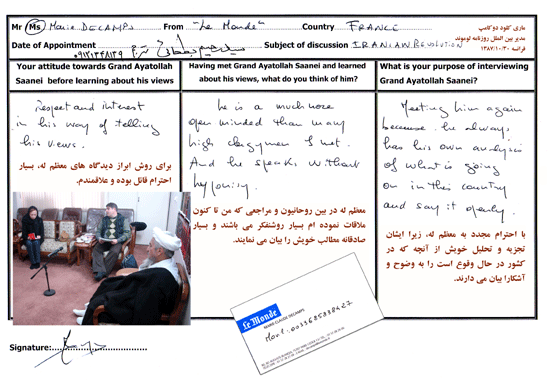 Mr Ms Marie DECAMPS From "Le Monde" Country FRANCE
Date of Appointment Subject of discussion IRANIAN REVOLUTION
ماری کلود دوکامپ
مدیر بین الملل روزنامه لوموند
فرانسه ۱۳۸۷/۱۰/۳۰
Your attitude towards Grand Ayatollah
Saanei before learning about his views
respect and interest
in his way of telling
his views.
برای روش ابراز دیدگاه های معظم له، بسیار
احترام قائل بوده و علاقمندم.
Having met Grand Ayatollah Saanei and learned
about his views, what do you think of him?
he is a much more
open minded than many
high clergymen I met.
And he speaks without
hypocrisy.
معظم له در بین روحانیون و مراجعی که من تا کنون
ملاقات نموده ام بسیار روشنفکر می باشند و بسیار
صادقانه مطالب خویش را بیان می نمایند.
What is your purpose of interviewing
Grand Ayatollah Saanei?
Meeting him again
because he always
has his own analysis
of what is going
on in this country
and say it openly.
با احترام مجدد به معظم له، زیرا ایشان
تجزیه و تحلیل خویش از آنچه که در
کشور در حال وقوع است را به وضوح و
آشکارا بیان می دارند.
Le Monde
MARIE-CLAUDE DECAMPS
Signature: